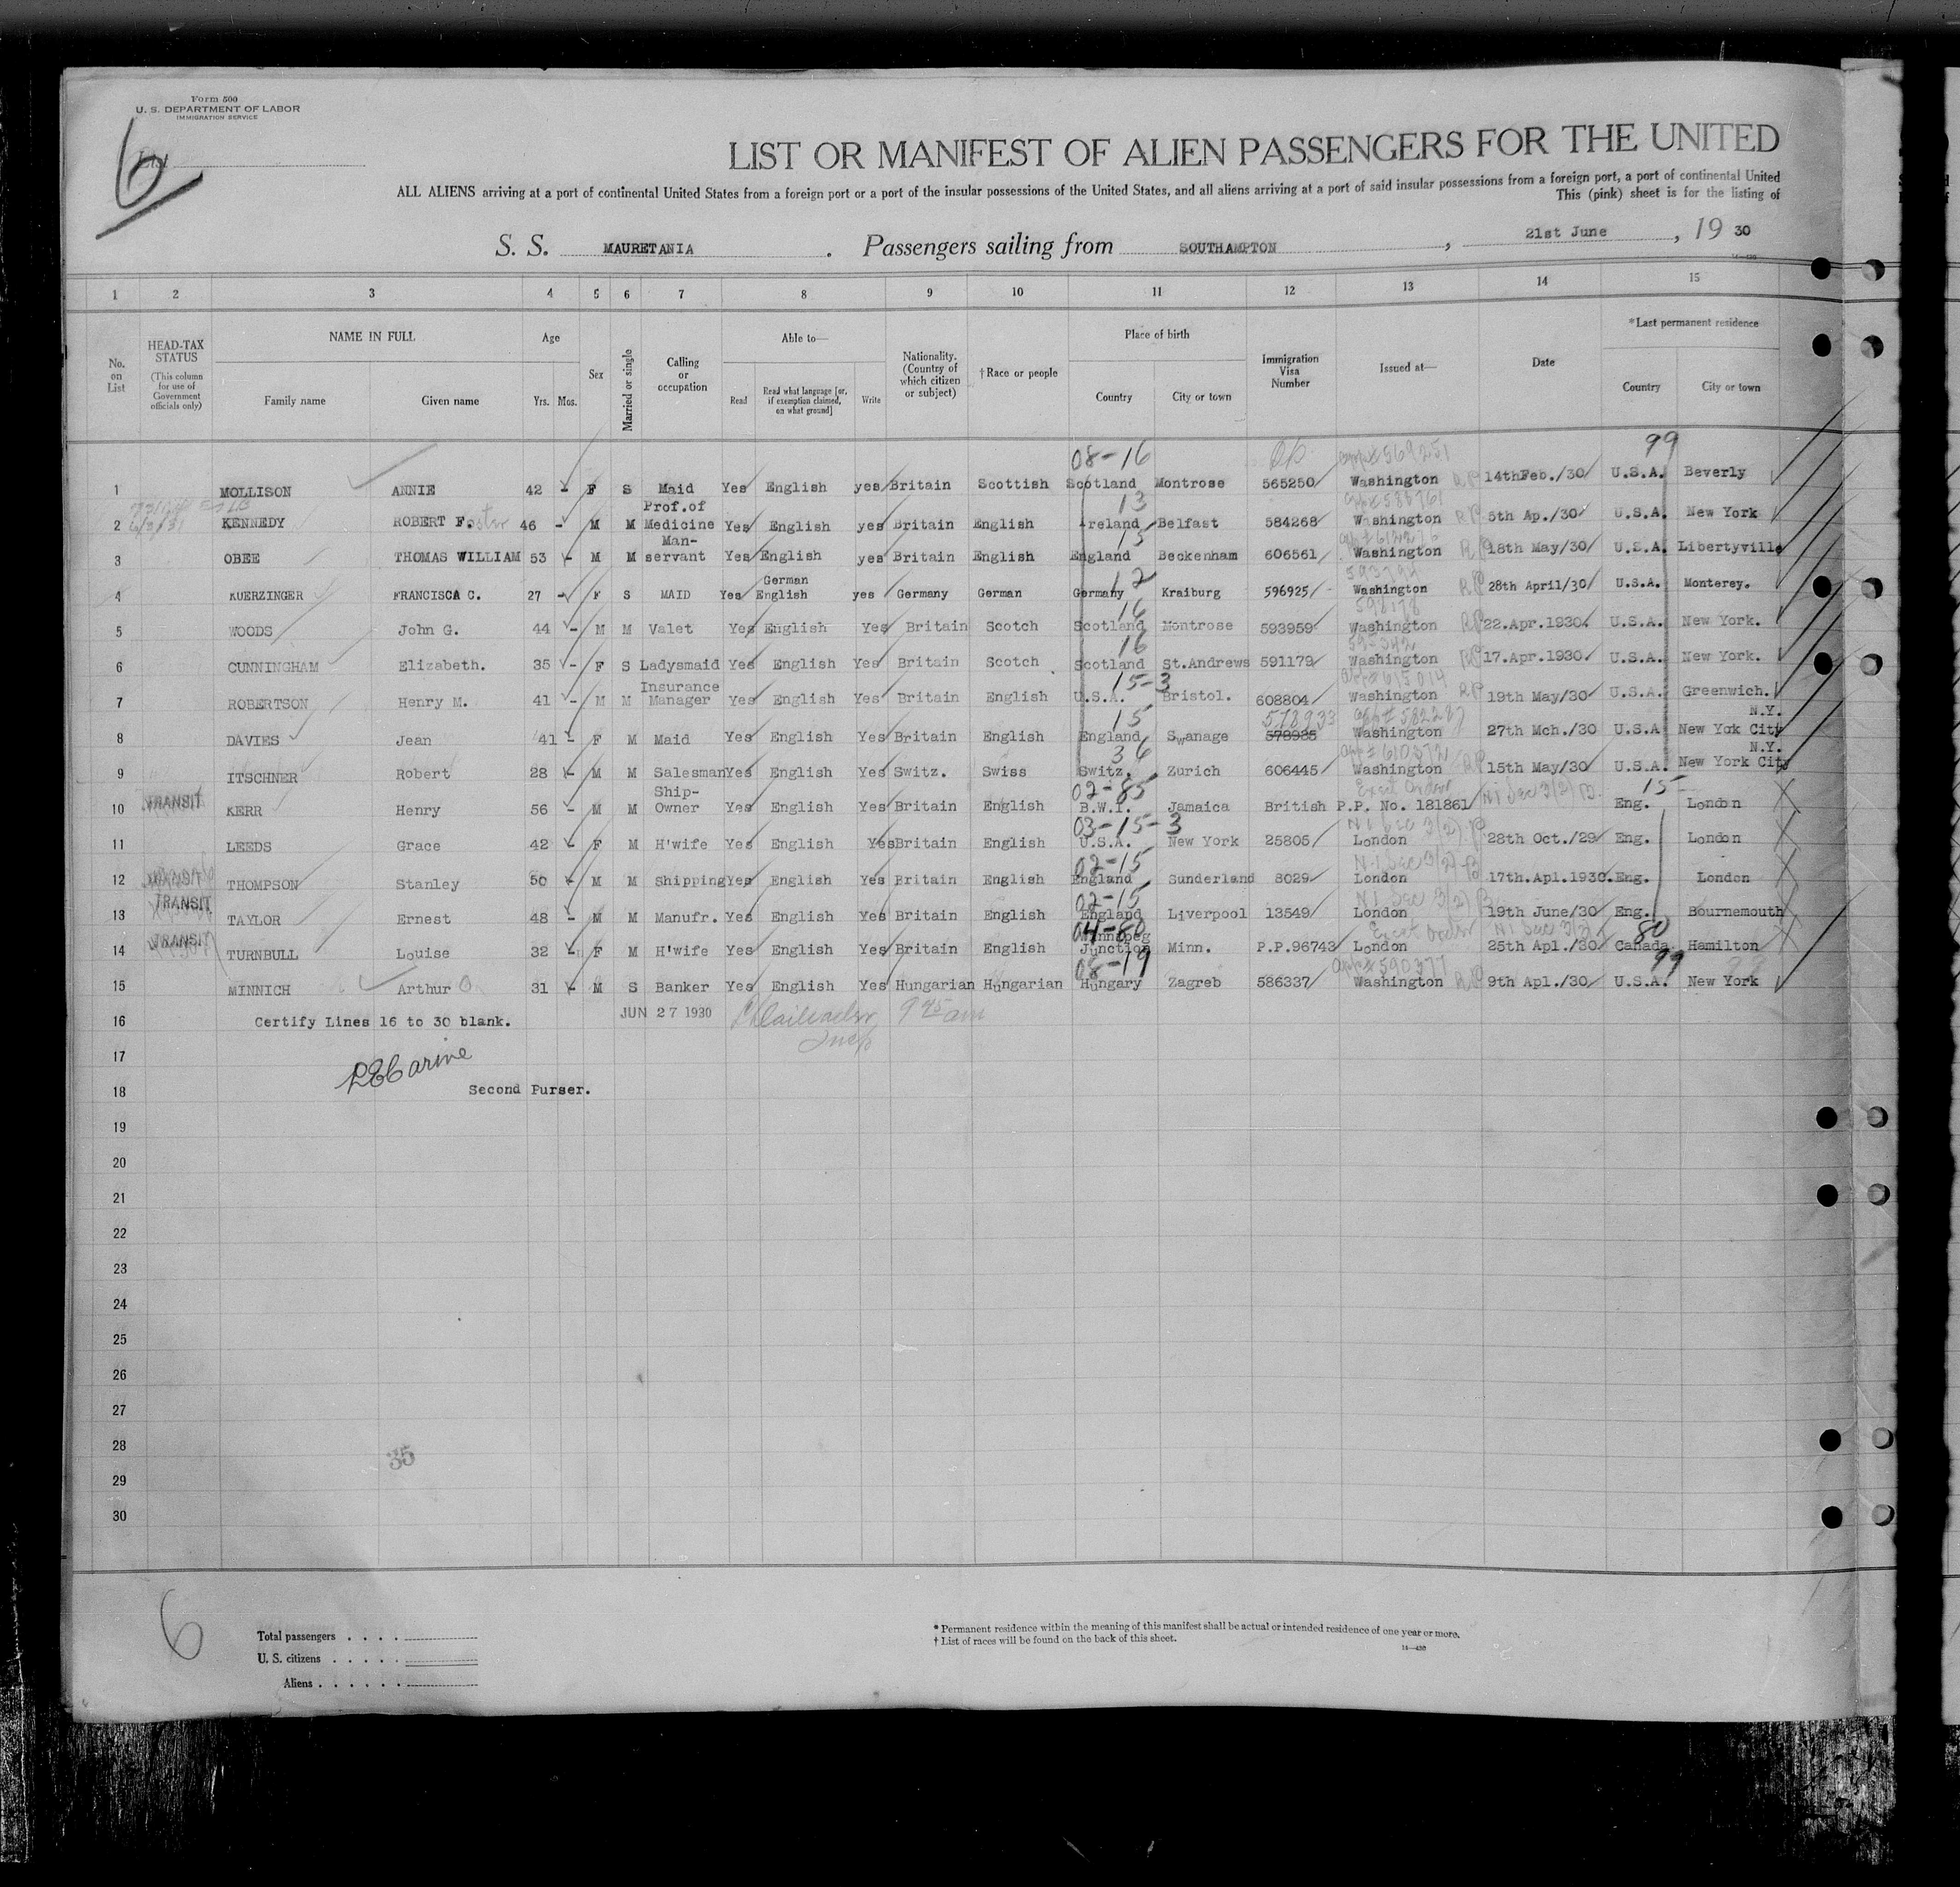 Form 500
U. S. DEPARTMENT OF LABOR
IMMIGRATION SERVICE
6
LIST OR MANIFEST OF ALIEN PASSENGERS FOR THE UNITED
ALL ALIENS arriving at a port of continental United States from a foreign port or a port of the insular possessions of the United States, and all aliens arriving at a port of said insular possessions from a foreign port, a port of continental United
This (pink) sheet is for the listing of
S. S. MAURETANIA. Passengers sailing from SOUTHAMPTON, 21st June, 19 30
1 2 3 4 5 6 7 8 9 10 11 12 13 14 15
No. on List
HEAD-TAX STATUS (This column for use of Government officials only)
NAME IN FULL Family name Given name
Age Yrs. Mos.
Sex
Married or single
Calling or occupation
Able to— Read Read what language [or, if exemption claimed, on what ground] Write
Nationality. (Country of which citizen or subject)
†Race or people
Place of birth Country City or town
Immigration Visa Number
Issued at—
Date
*Last permanent residence Country City or town
08-16 99
1 MOLLISON ANNIE 42 - F S Maid Yes English yes Britain Scottish Scotland Montrose 565250 Washington RP 14thFeb./30 U.S.A. Beverly
13
2 KENNEDY ROBERT F. 46 - M M Prof.of Medicine Yes English yes Britain English Ireland Belfast 584268 Washington RP 5th Ap./30 U.S.A. New York
15
3 OBEE THOMAS WILLIAM 53 - M M Man-servant Yes English yes Britain English England Beckenham 606561 Washington RP 18th May/30 U.S.A. Libertyville
12
4 KUERZINGER FRANCISCA C. 27 - F S MAID Yes German English yes Germany German Germany Kraiburg 596925 Washington RP 28th April/30 U.S.A. Monterey.
16
5 WOODS John G. 44 - M M Valet Yes English Yes Britain Scotch Scotland Montrose 593959 Washington RP 22.Apr.1930. U.S.A. New York.
16
6 CUNNINGHAM Elizabeth. 35 - F S Ladysmaid Yes English Yes Britain Scotch Scotland St.Andrews 591179 Washington RP 17.Apr.1930. U.S.A. New York.
15-3
7 ROBERTSON Henry M. 41 - M M Insurance Manager Yes English Yes Britain English U.S.A. Bristol. 608804 Washington RP 19th May/30 U.S.A. Greenwich.
15 578933
8 DAVIES Jean 41 - F M Maid Yes English Yes Britain English England Swanage 578935 Washington 27th Mch./30 U.S.A N.Y. New York City
36
9 ITSCHNER Robert 28 - M M Salesman Yes English Yes Switz. Swiss Switz. Zurich 606445 Washington RP 15th May/30 U.S.A. N.Y. New York City
02-85 15
10 TRANSIT KERR Henry 56 - M M Ship-Owner Yes English Yes Britain English B.W.I. Jamaica British P.P. No. 181861 Eng. London
03-15-3
11 LEEDS Grace 42 - F M H'wife Yes English Yes Britain English U.S.A. New York 25805 London 28th Oct./29 Eng. London
02-15
12 THOMPSON Stanley 50 - M M Shipping Yes English Yes Britain English England Sunderland 8029 London 17th.Apl.1930. Eng. London
02-15
13 TRANSIT TAYLOR Ernest 48 - M M Manufr. Yes English Yes Britain English England Liverpool 13549 London 19th June/30 Eng. Bournemouth
04-80 80
14 TRANSIT TURNBULL Louise 32 - F M H'wife Yes English Yes Britain English Winnipeg Junction Minn. P.P.96743 London 25th Apl./30 Canada Hamilton
08-19 99
15 MINNICH Arthur O 31 - M S Banker Yes English Yes Hungarian Hungarian Hungary Zagreb 586337 Washington RP 9th Apl./30 U.S.A. New York
16 Certify Lines 16 to 30 blank. JUN 27 1930 9 45 am
17
18 Second Purser.
19
20
21
22
23
24
25
26
27
28
35
29
30
6
Total passengers . . . .
U. S. citizens . . . . .
Aliens . . . . . .
* Permanent residence within the meaning of this manifest shall be actual or intended residence of one year or more.
† List of races will be found on the back of this sheet.